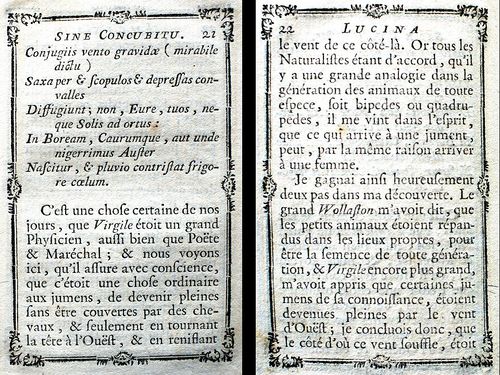 SINE CONCUBITU. 21
Conjugiis vento gravidæ (mirabile
dictu)
Saxa per & scopulos & depreſſas con-
valles
Diffugiunt; non, Eure, tuos, ne-
que Solis ad ortus:
In Boream, Caurumque, aut unde
nigerrimus Auſter
Naſcitur, & pluvio contriſtat frigo-
re cœlum.
C'eſt une choſe certaine de nos
jours, que Virgile étoit un grand
Phyſicien, auſſi bien que Poëte
& Maréchal; & nous voyons
ici, qu'il aſſure avec conſcience,
que c'étoit une choſe ordinaire
aux jumens, de devenir pleines
ſans être couvertes par des che-
vaux, & ſeulement en tournant
la tête à l'Oüeſt, & en reniflant
22 LUCINA
le vent de ce côté-là. Or tous les
Naturaliſtes étant d'accord, qu'il
y a une grande analogie dans la
génération des animaux de toute
eſpece, ſoit bipedes ou quadru-
pedes, il me vint dans l'eſprit,
que ce qui arrive à une jument,
peut, par la même raiſon arriver
à une femme.
Je gagnai ainſi heureuſement
deux pas dans ma découverte. Le
grand Wollaſton m'avoit dit, que
les petits animaux étoient répan-
dus dans les lieux propres, pour
être la ſemence de toute généra-
tion, & Virgile encore plus grand,
m'avoit appris que certaines ju-
mens de ſa connoiſſance, étoient
devenues pleines par le vent
d'Oüeſt; je concluois donc, que
le côté d'où ce vent ſouffle, étoit